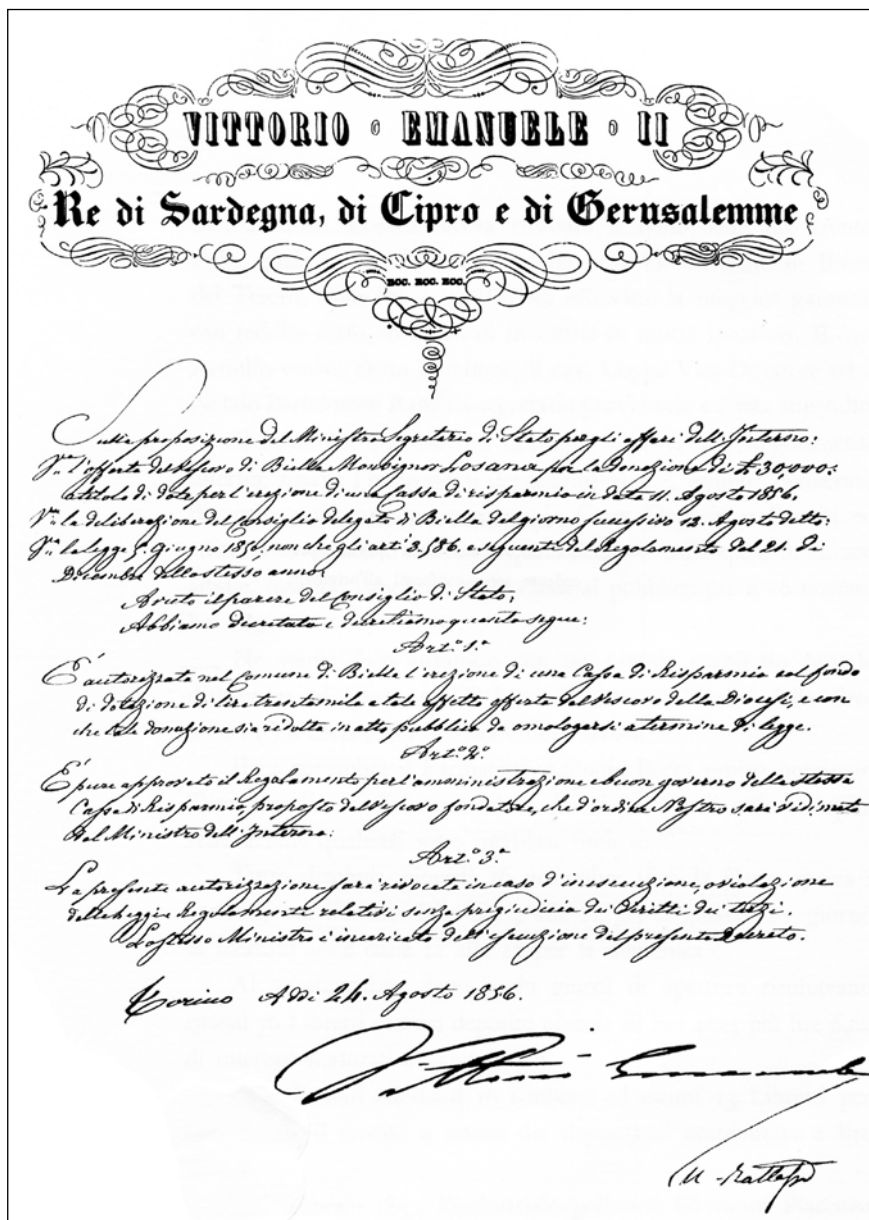 VITTORIO EMANUELE II
Re di Sardegna, di Cipro e di Gerusalemme
ECC. ECC. ECC.
Sulla proposizione del Ministro Segretario di Stato per gli affari dell'Interno:
V.ta l'offerta del Vescovo di Biella Monsignor Losana per la donazione di £ 30,000:
a titolo di dote per l'erezione di una Cassa di risparmio in data 11. Agosto 1856.
V.ta la deliberazione del Consiglio delegato di Biella del giorno successivo 12. Agosto detto:
V.ta la legge Giugno 1850, non che gli art.i 3.586. e seguenti del Regolamento del 21. di
Dicembre dello stesso anno:
Avuto il parere del Consiglio di Stato;
Abbiamo decretato e decretiamo quanto segue:
Art.o 1.o
È autorizzata nel Comune di Biella l'erezione di una Cassa di Risparmio col fondo
di dotazione di lire trentamila a tale effetto offerto dal Vescovo della Diocesi, e con
che tale donazione sia ridotta in atto pubblico da omologarsi a termine di legge.
Art.o 2.o
È pure approvato il Regolamento per l'amministrazione e buon governo della stessa
Cassa di Risparmio, proposto dal Vescovo fondatore, che d'ordine Nostro sarà vidimato
dal Ministro dell'Interno:
Art.o 3.o
La presente autorizzazione sarà rivocata in caso d'inesecuzione, o violazione
delle Leggi e Regolamenti relativi senza pregiudicio dei Diritti dei terzi.
Lo stesso Ministro è incaricato dell'esecuzione del presente Decreto.
Torino Addì 24. Agosto 1856.
Vittorio Emanuele
U. Rattazzi